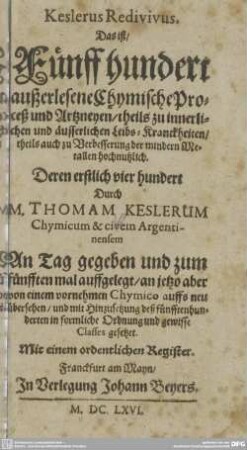 Keslerus Redivivus.
Das ist/
Fünff hundert
außerlesene Chymische Pro-
ceß und Artzneyen/theils zu innerli-
chen und äusserlichen Leibs-Kranckheiten/
theils auch zu Verbesserung der mindern Me-
tallen hochnützlich.
Deren erstlich vier hundert
Durch
M. THOMAM KESLERUM
Chymicum & civem Argenti-
nensem
An Tag gegeben und zum
fünfften mal auffgelegt/an jetzo aber
von einem vornehmen Chymico auffs neu
übersehen/ und mit Hinzusetzung deß fünfftenhun-
derten in formliche Ordnung und gewisse
Classes gesetzet.
Mit einem ordentlichen Register.
Franckfurt am Mayn/
In Verlegung Johann Beyers.
M. DC. LXVI.